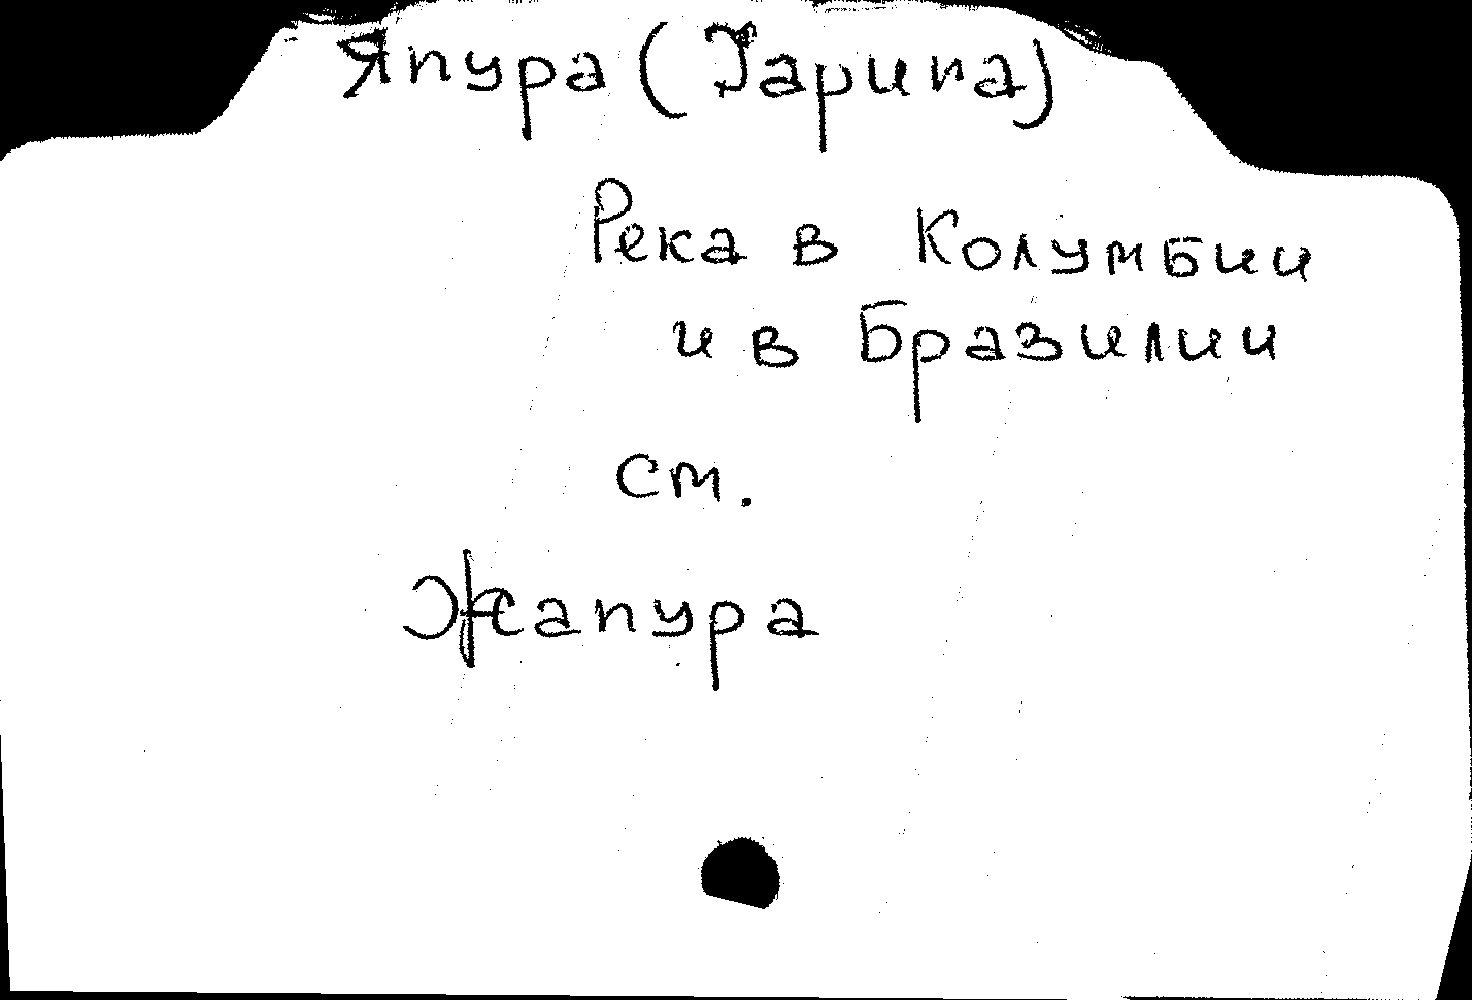 Япура
Река в Колумбии
и в Бразилии
см.
Жапура